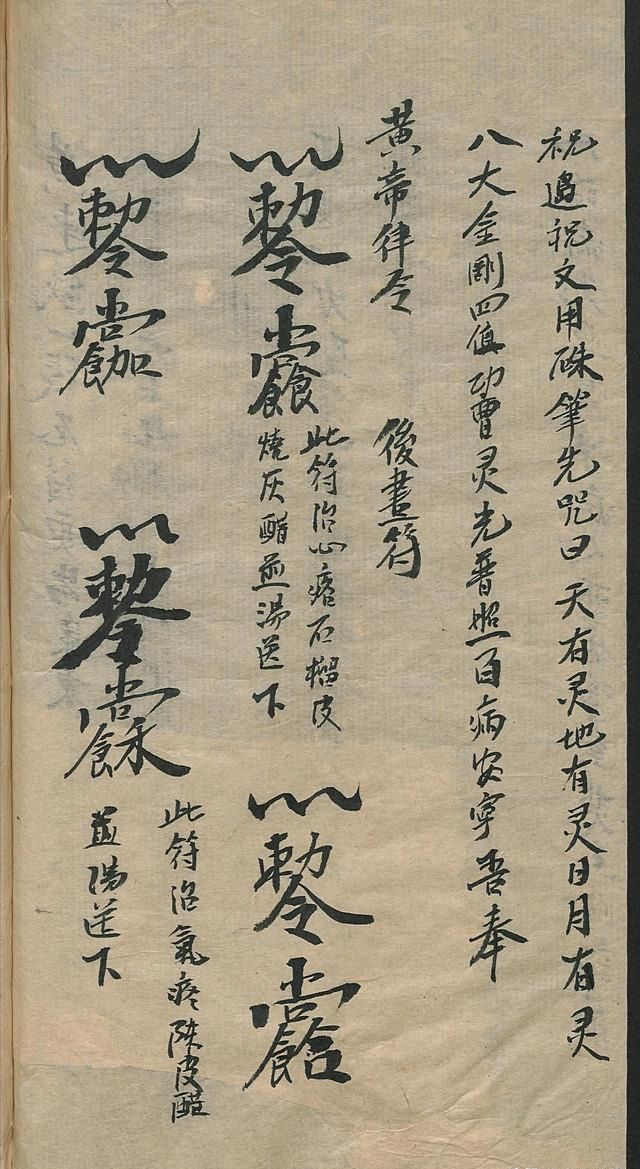 祝過祝文用硃筆先咒曰天有灵地有灵日月有灵
八大金剛四值功曹灵光普照百病安寧吾奉
黄帝律令　後畫符
敕令
此符治心瘩石榴皮
燒灰醋煎湯送下
敕令
敕令
敕令
此符治氣疼陈皮醋
煎湯送下